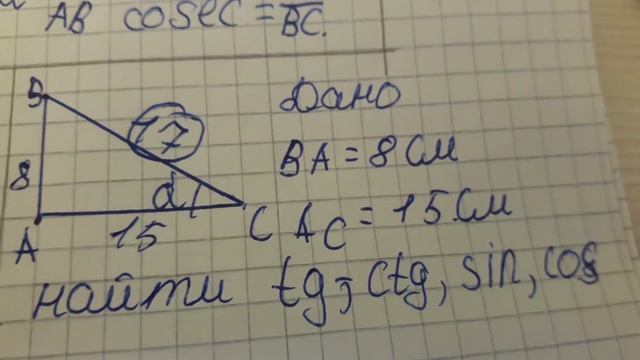 AB cosec = BC.
B
17
Дано
8
BA = 8 см
α
A
15
C
AC = 15 см
найти tg, ctg, sin, cos